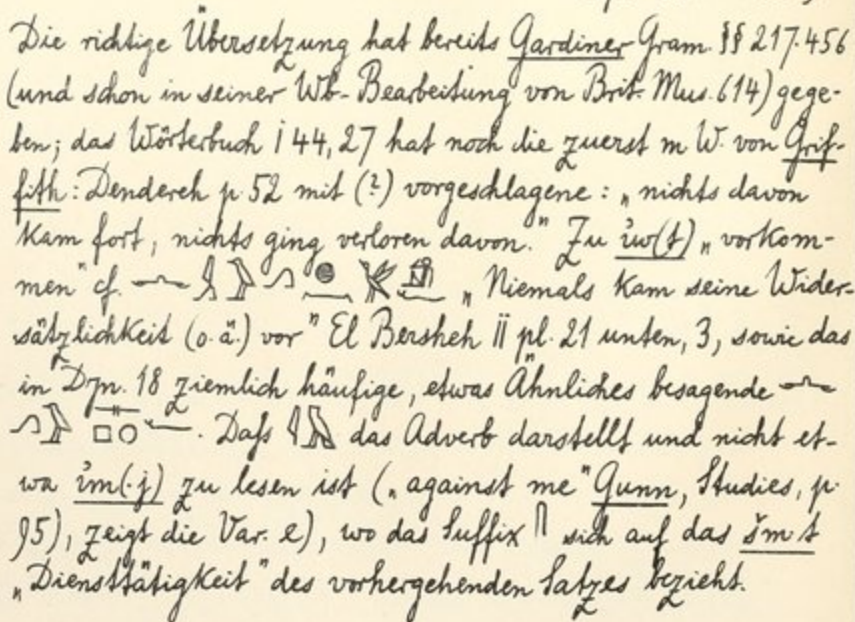 Die richtige Übersetzung hat bereits Gardiner Gram. §§ 217. 456
(und schon in seiner Wb-Bearbeitung von Brit. Mus. 614) gege-
ben; das Wörterbuch I 44, 27 hat noch die zuerst m W. von Grif-
fith: Dendereh p. 52 mit (?) vorgeschlagene: „nichts davon
kam fort, nichts ging verloren davon." Zu iw(t) „vorkom-
men" cf. „Niemals kam seine Wider-
sätzlichkeit (o. ä.) vor" El Bersheh II pl. 21 unten, 3, sowie das
in Dyn. 18 ziemlich häufige, etwas Ähnliches besagende
. Daſs das Adverb darstellt und nicht et-
wa im(.j) zu lesen ist („against me" Gunn, Studies, p.
95), zeigt die Var. e), wo das Suffix sich auf das šmt
„Diensttätigkeit" des vorhergehenden Satzes bezieht.